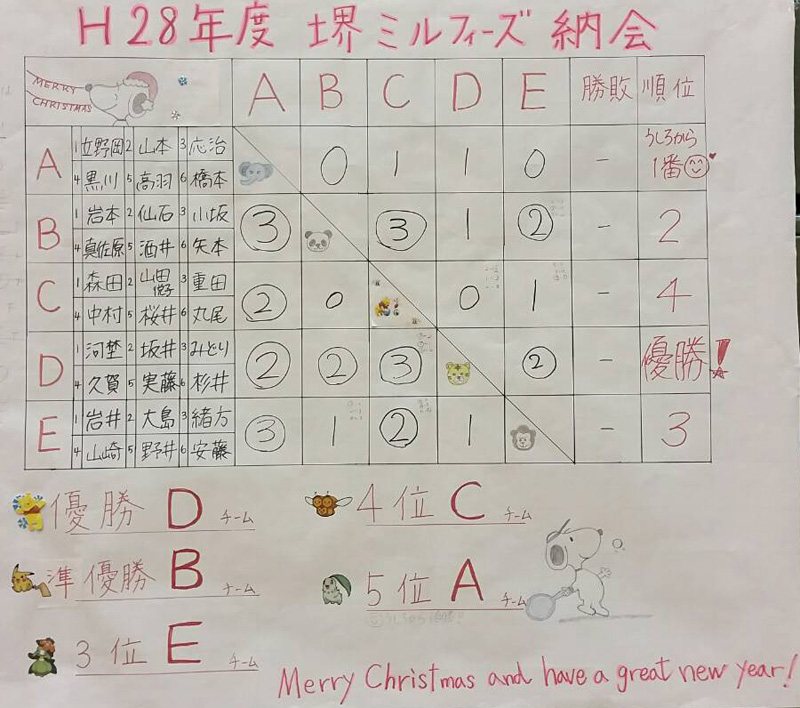 H28年度 堺ミルフィーズ 納会
MERRY
CHRISTMAS
A B C D E 勝敗 順位
A 1 立野岡 2 山本 3 応治
4 黒川 5 高羽 6 橋本
0 1 1 0 - うしろから
1番
B 1 岩本 2 仙石 3 小坂
4 真佐原 5 酒井 6 矢本
③ ③ 1 ② - 2
C 1 森田 2 山田 3 重田
4 中村 5 桜井 6 丸尾
② 0 0 1 - 4
D 1 河埜 2 坂井 3 みどり
4 久賀 5 実藤 6 杉井
② ② ③ ② - 優勝!
E 1 岩井 2 大島 3 緒方
4 山崎 5 野井 6 安藤
③ 1 ② 1 - 3
優勝 D チーム
4位 C チーム
準優勝 B チーム
5位 A チーム
3位 E チーム
Merry Christmas and have a great new year!